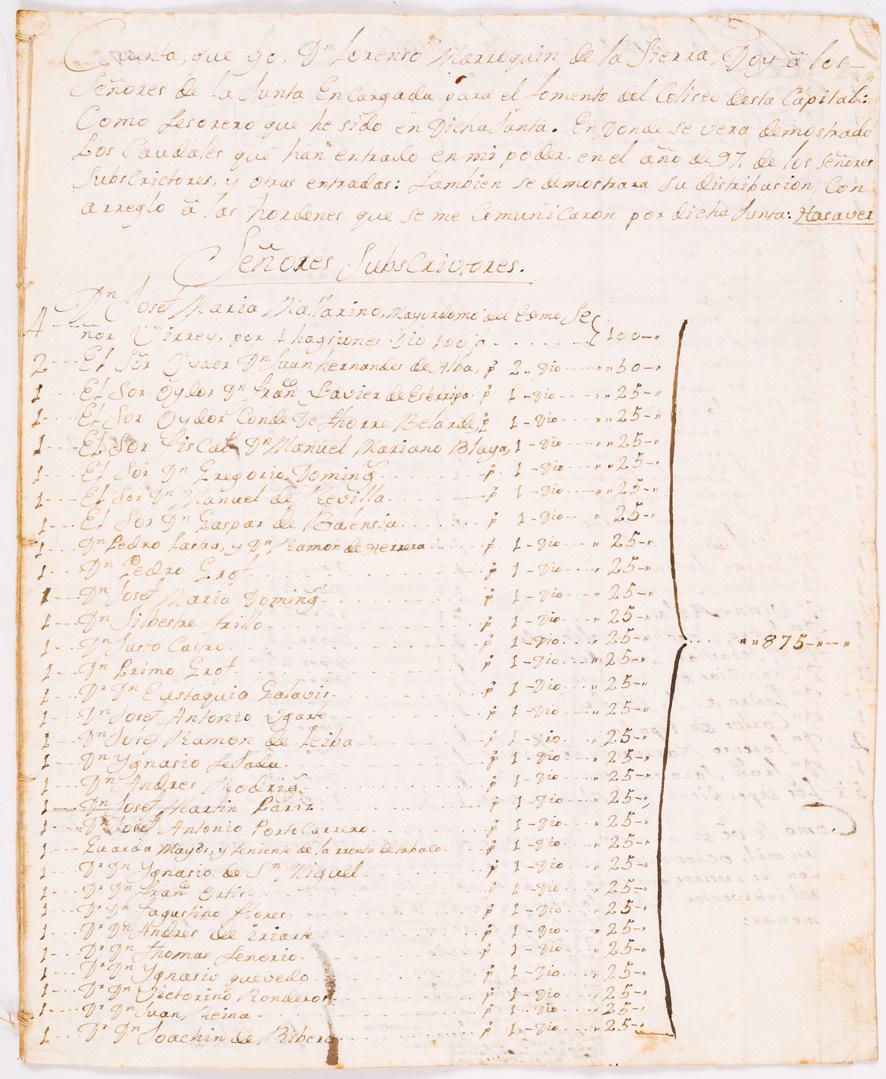 Cuenta, que yo, Dn Lorenso Marroquin de la Sierra, Doy â los
Señores de la Junta Encargada para el fomento del Coliseo desta Capital:
Como Tesorero que he sido en Dicha Junta. En Donde se vera demostrado
Los Caudales que han entrado en mi poder en el año de 97, de los Señores
Subscrictores, y otras entradas: tambien se demostrara su distribusion, Con
arreglo â las hordenes que se me Comuñicaron por dicha Junta: Hasaver
Señores Subscrictores.
4 Dn Josef Maria Mallarino, Mayordomo del Exmo Se
ñor Virrey, por 4 hagsiones Dio 100 p 100
2 El Sor Oydor Dn Juan hernandes de Alba, p 2 Dio 50
1 El Sor Oydor Dn Fran Xavier de Eserripa p 1 Dio 25
1 El Sor Oydor Conde De thorre Belarde, p 1 Dio 25
1 El Sor Fiscal Dn Manuel Mariano Blaya, 1 Dio 25
1 El Sor Dn Gregorio Doming p 1 Dio 25
1 El Sor Dn Mañuel de Revilla p 1 Dio 25
1 El Sor Dn Gaspar de Balensia p 1 Dio 25
1 Dn Pedro Lastra, y Dn Ramon de Herrera p 1 Dio 25
1 Dn Pedro Grot p 1 Dio 25
1 Dn Josef Maria Doming p 1 Dio 25
1 Dn Silbestre trillo p 1 Dio 25
1 Dn Justo Castro p 1 Dio 25 875
1 Dn Primo Grot p 1 Dio 25
1 Dr Dn Eustaquio Galavis p 1 Dio 25
1 Dn Josef Antonio Ugarte p 1 Dio 25
1 Dn Josef Ramon de Leiba p 1 Dio 25
1 Dn Ygnasio Tejada p 1 Dio 25
1 Dn Andres Rodrig p 1 Dio 25
1 Dn Josef Martin Paris p 1 Dio 25
1 Dn Josef Antonio Portocarrero p 1 Dio 25
1 Guarda Mayor, y teniente de la rrenta de tabaco p 1 Dio 25
1 Dr Dn Ygnasio de Sn Miguel p 1 Dio 25
1 Dr Dn Fran Ortis p 1 Dio 25
1 Dr Dn Fagustino Flores p 1 Dio 25
1 Dr Dn Andres de Yriarte p 1 Dio 25
1 Dr Dn thomas tenorio p 1 Dio 25
1 Dr Dn Ygnasio quevedo p 1 Dio 25
1 Dr Dn Victorino Ronderos p 1 Dio 25
1 Dr Dn Juan Reina p 1 Dio 25
1 Dr Dn Joachin de Ribero p 1 Dio 25